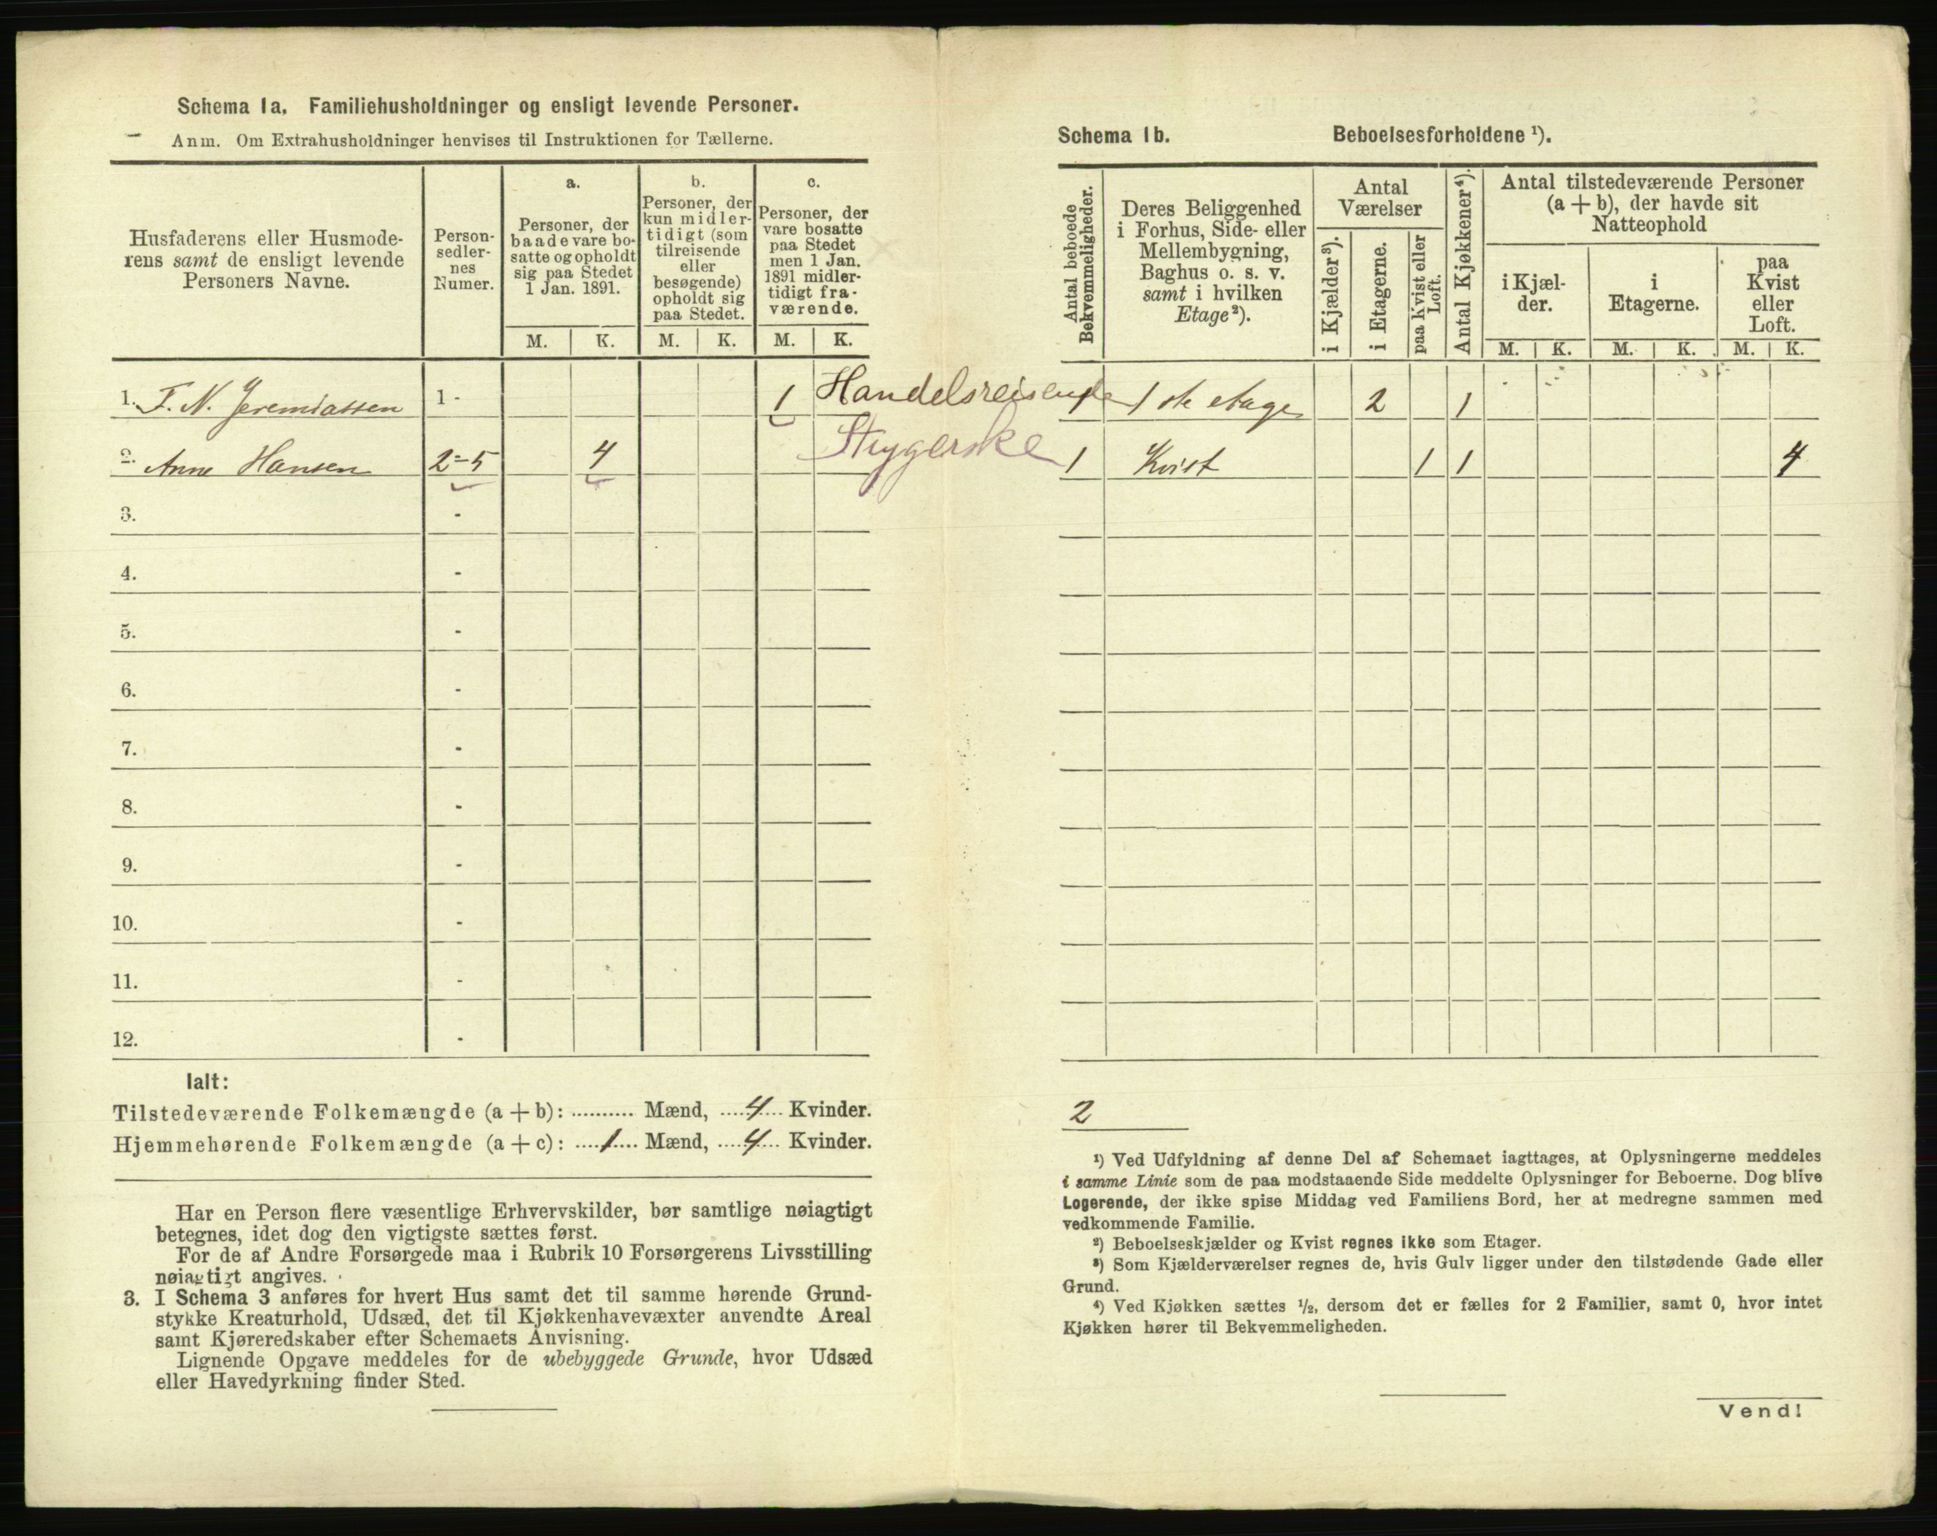 Schema 1a. Familiehusholdninger og ensligt levende Personer.
Anm. Om Extrahusholdninger henvises til Instruktionen for Tællerne.
Husfaderens eller Husmode-
rens samt de ensligt levende
Personers Navne.
Person-
sedler-
nes
Numer.
a.
Personer, der
baade vare bo-
satte og opholdt
sig paa Stedet
1 Jan. 1891.
b.
Personer, der
kun midler-
tidigt (som
tilreisende
eller
besøgende)
opholdt sig
paa Stedet.
c.
Personer, der
vare bosatte
paa Stedet
men 1 Jan.
1891 midler-
tidigt fra-
værende.
M. K. M. K. M. K.
1. F. N. Jeremiassen 1 - 1 Handelsreisende
2. Anne Hansen 2-5 4 Strygerske
3. -
4. -
5. -
6. -
7. -
8. -
9. -
10. -
11. -
12. -
Ialt:
Tilstedeværende Folkemængde (a + b): .......... Mænd, .....4.... Kvinder.
Hjemmehørende Folkemængde (a + c): ....1.... Mænd, .....4.... Kvinder.
Har en Person flere væsentlige Erhvervskilder, bør samtlige nøiagtigt
betegnes, idet dog den vigtigste sættes først.
For de af Andre Forsørgede maa i Rubrik 10 Forsørgerens Livsstilling
nøiagtigt angives.
3. I Schema 3 anføres for hvert Hus samt det til samme hørende Grund-
stykke Kreaturhold, Udsæd, det til Kjøkkenhavevæxter anvendte Areal
samt Kjøreredskaber efter Schemaets Anvisning.
Lignende Opgave meddeles for de ubebyggede Grunde, hvor Udsæd
eller Havedyrkning finder Sted.
Schema 1b. Beboelsesforholdene ¹).
Antal beboede
Bekvemmeligheder.
Deres Beliggenhed
i Forhus, Side- eller
Mellembygning,
Baghus o. s. v.
samt i hvilken
Etage²).
Antal
Værelser
i Kjælder³).
i Etagerne.
paa Kvist eller
Loft.
Antal Kjøkkener⁴).
Antal tilstedeværende Personer
(a + b), der havde sit
Natteophold
i Kjæl-
der.
i
Etagerne.
paa
Kvist
eller
Loft.
M. K. M. K. M. K.
1 1 ste etage 2 1
1 Kvist 1 1 4
2
¹) Ved Udfyldning af denne Del af Schemaet iagttages, at Oplysningerne meddeles
i samme Linie som de paa modstaaende Side meddelte Oplysninger for Beboerne. Dog blive
Logerende, der ikke spise Middag ved Familiens Bord, her at medregne sammen med
vedkommende Familie.
²) Beboelseskjælder og Kvist regnes ikke som Etager.
³) Som Kjælderværelser regnes de, hvis Gulv ligger under den tilstødende Gade eller
Grund.
⁴) Ved Kjøkken sættes ½, dersom det er fælles for 2 Familier, samt 0, hvor intet
Kjøkken hører til Bekvemmeligheden.
Vend!